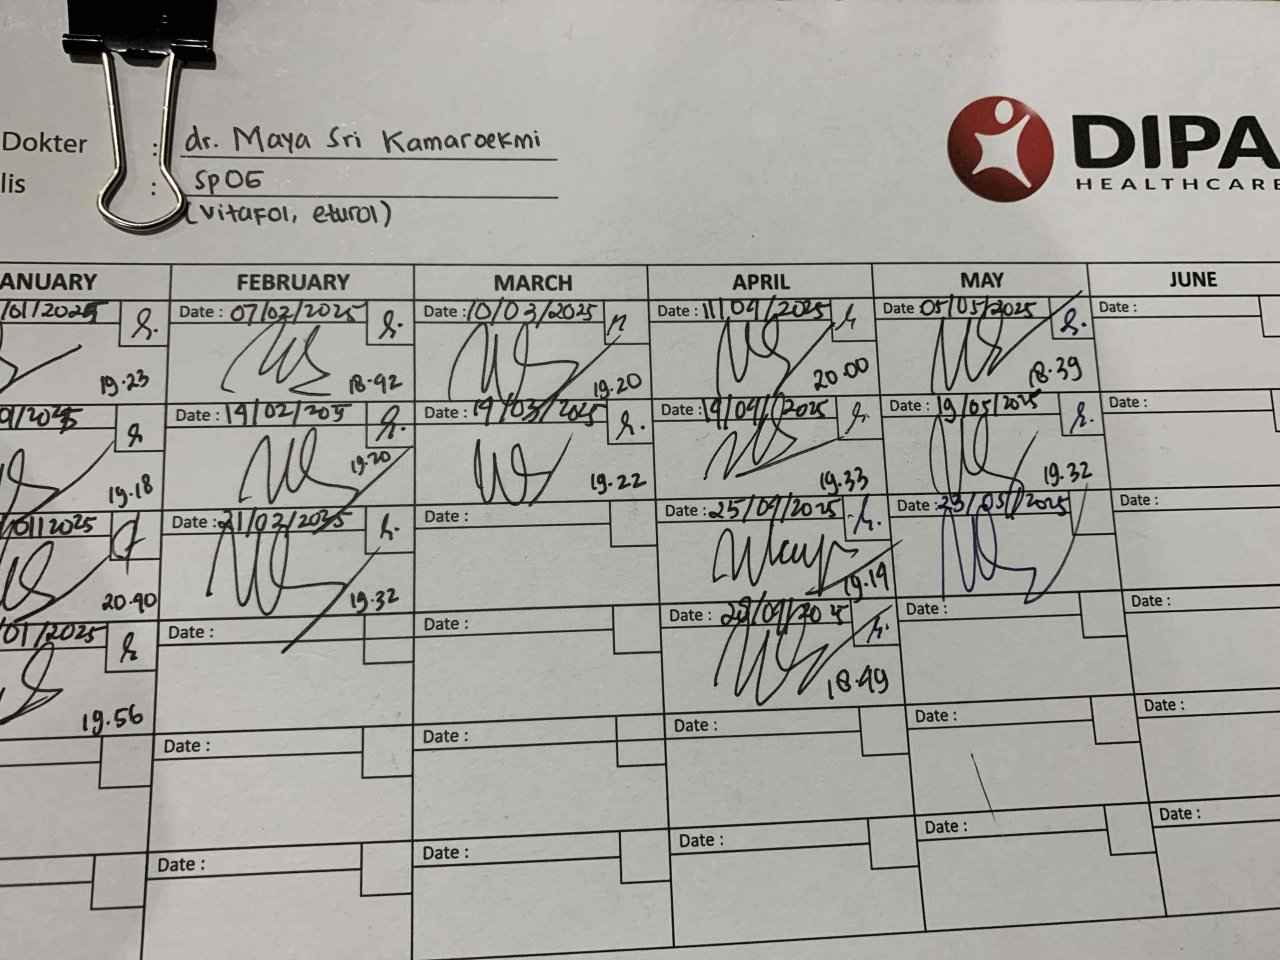 Dokter : dr. Maya Sri Kamaroekmi
lis : SpOG
(vitafol, eturol)
DIPA
HEALTHCARE
ANUARY FEBRUARY MARCH APRIL MAY JUNE
/01/2025 Date : 07/02/2025 Date : 10/03/2025 Date : 11/04/2025 Date : 05/05/2025 Date :
19.23 18.42 19.20 20.00 18.39
/2025 Date : 14/02/2025 Date : 14/03/2025 Date : 14/04/2025 Date : 19/05/2025 Date :
19.18 19.20 19.22 19.33 19.32
/01/2025 Date : 21/02/2025 Date : Date : 25/04/2025 Date : 23/05/2025 Date :
20.40 19.32 19.14
/01/2025 Date : Date : Date : 28/04/2025 Date : Date :
19.56 18.49
Date : Date : Date : Date : Date :
Date : Date : Date : Date : Date :